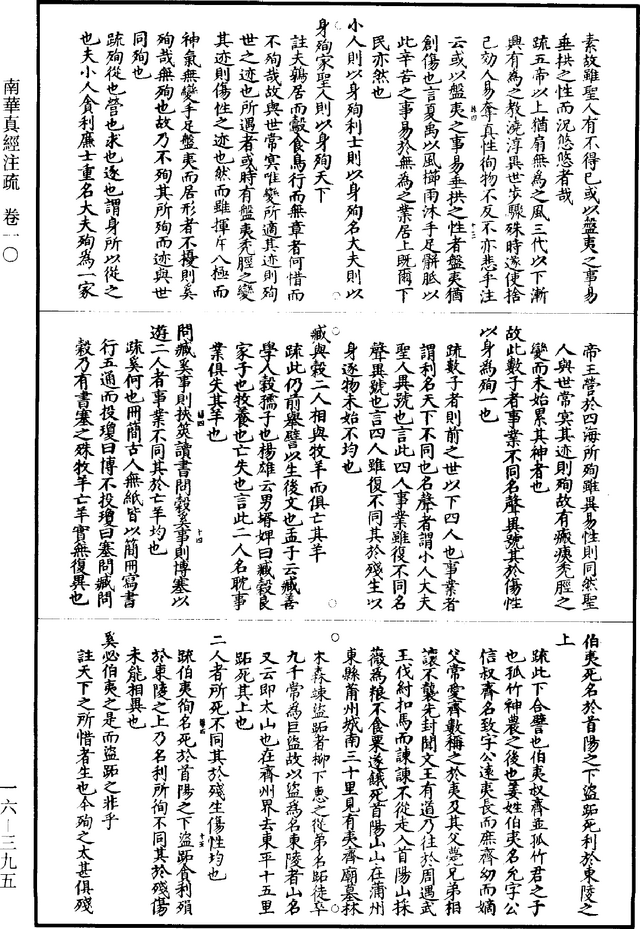 素故雖聖人有不得已或以盤夷之事易
垂拱之性而況悠悠者哉
疏五帝以上猶扇無為之風三代以下漸
興有為之教澆淳異世步驟殊時遂使捨
己効人易奪真性徇物不反不亦悲乎注
云或以盤夷之事易垂拱之性者盤夷猶
創傷也言夏禹以風櫛雨沐手足胼胝以
此辛苦之事易於無為之業居上既爾下
民亦然也
小人則以身殉利士則以身殉名大夫則以
身殉家聖人則以身殉天下
註夫鶉居而鷇食鳥行而無章者何惜而
不殉哉故與世常冥唯變所適其迹則殉
世之迹也所遇者或時有盤夷禿脛之變
其迹則傷性之迹也然而雖揮斥八極而
神氣無變手足盤夷而居形者不擾則奚
殉哉無殉也故乃不殉其所殉而迹與世
同殉也
疏殉從也營也求也逐也謂身所以從之
也夫小人貪利廉士重名大夫殉為一家
帝王營於四海所殉雖異易性則同然聖
人與世常冥其迹則殉故有瘢痍禿脛之
變而未始累其神者也
故此數子者事業不同名聲異號其於傷性
以身為殉一也
疏數子者則前之世以下四人也事業者
謂利名天下不同也名聲者謂小人大夫
聖人異號也言此四人事業雖復不同名
聲異號也言四人雖復不同其於殘生以
身逐物未始不均也
臧與穀二人相與牧羊而俱亡其羊
疏此仍前舉譬以生後文也孟子云臧善
學人穀孺子也楊雄云男婿婢曰臧穀良
家子也牧養也亡失也言此二人名耽事
業俱失其羊也
問臧奚事則挾筴讀書問穀奚事則博塞以
遊二人者事業不同其於亡羊均也
疏奚何也冊簡古人無紙皆以簡冊寫書
行五道而投瓊曰博不投瓊曰塞問臧問
穀乃有書塞之殊牧羊亡羊實無復異也
伯夷死名於首陽之下盜跖死利於東陵之
上
疏此下合譬也伯夷叔齊並孤竹君之子
也孤竹神農之後也姜姓伯夷名允字公
信叔齊名致字公遠夷長而庶齊幼而嫡
父常愛齊數稱之於夷及其父薨兄弟相
讓不襲先封聞文王有道乃往於周遇武
王伐紂扣馬而諫諫不從走入首陽山採
薇為糧不食粟遂餓死首陽山山在蒲州
東縣蒲州城南三十里見有夷齊廟墓林
木森竦盜跖者柳下惠之從弟名跖徒卒
九千常為巨盜故以盜為名東陵者山名
又云即太山也在齊州界去東平十五里
跖死其上也
二人者所死不同其於殘生傷性均也
疏伯夷徇名死於首陽之下盜跖貪利殞
於東陵之上乃名利所徇不同其於殘傷
未能相異也
奚必伯夷之是而盜跖之非乎
註天下之所惜者生也今殉之太甚俱殘
南華真經注疏　卷一〇
一六—三九五